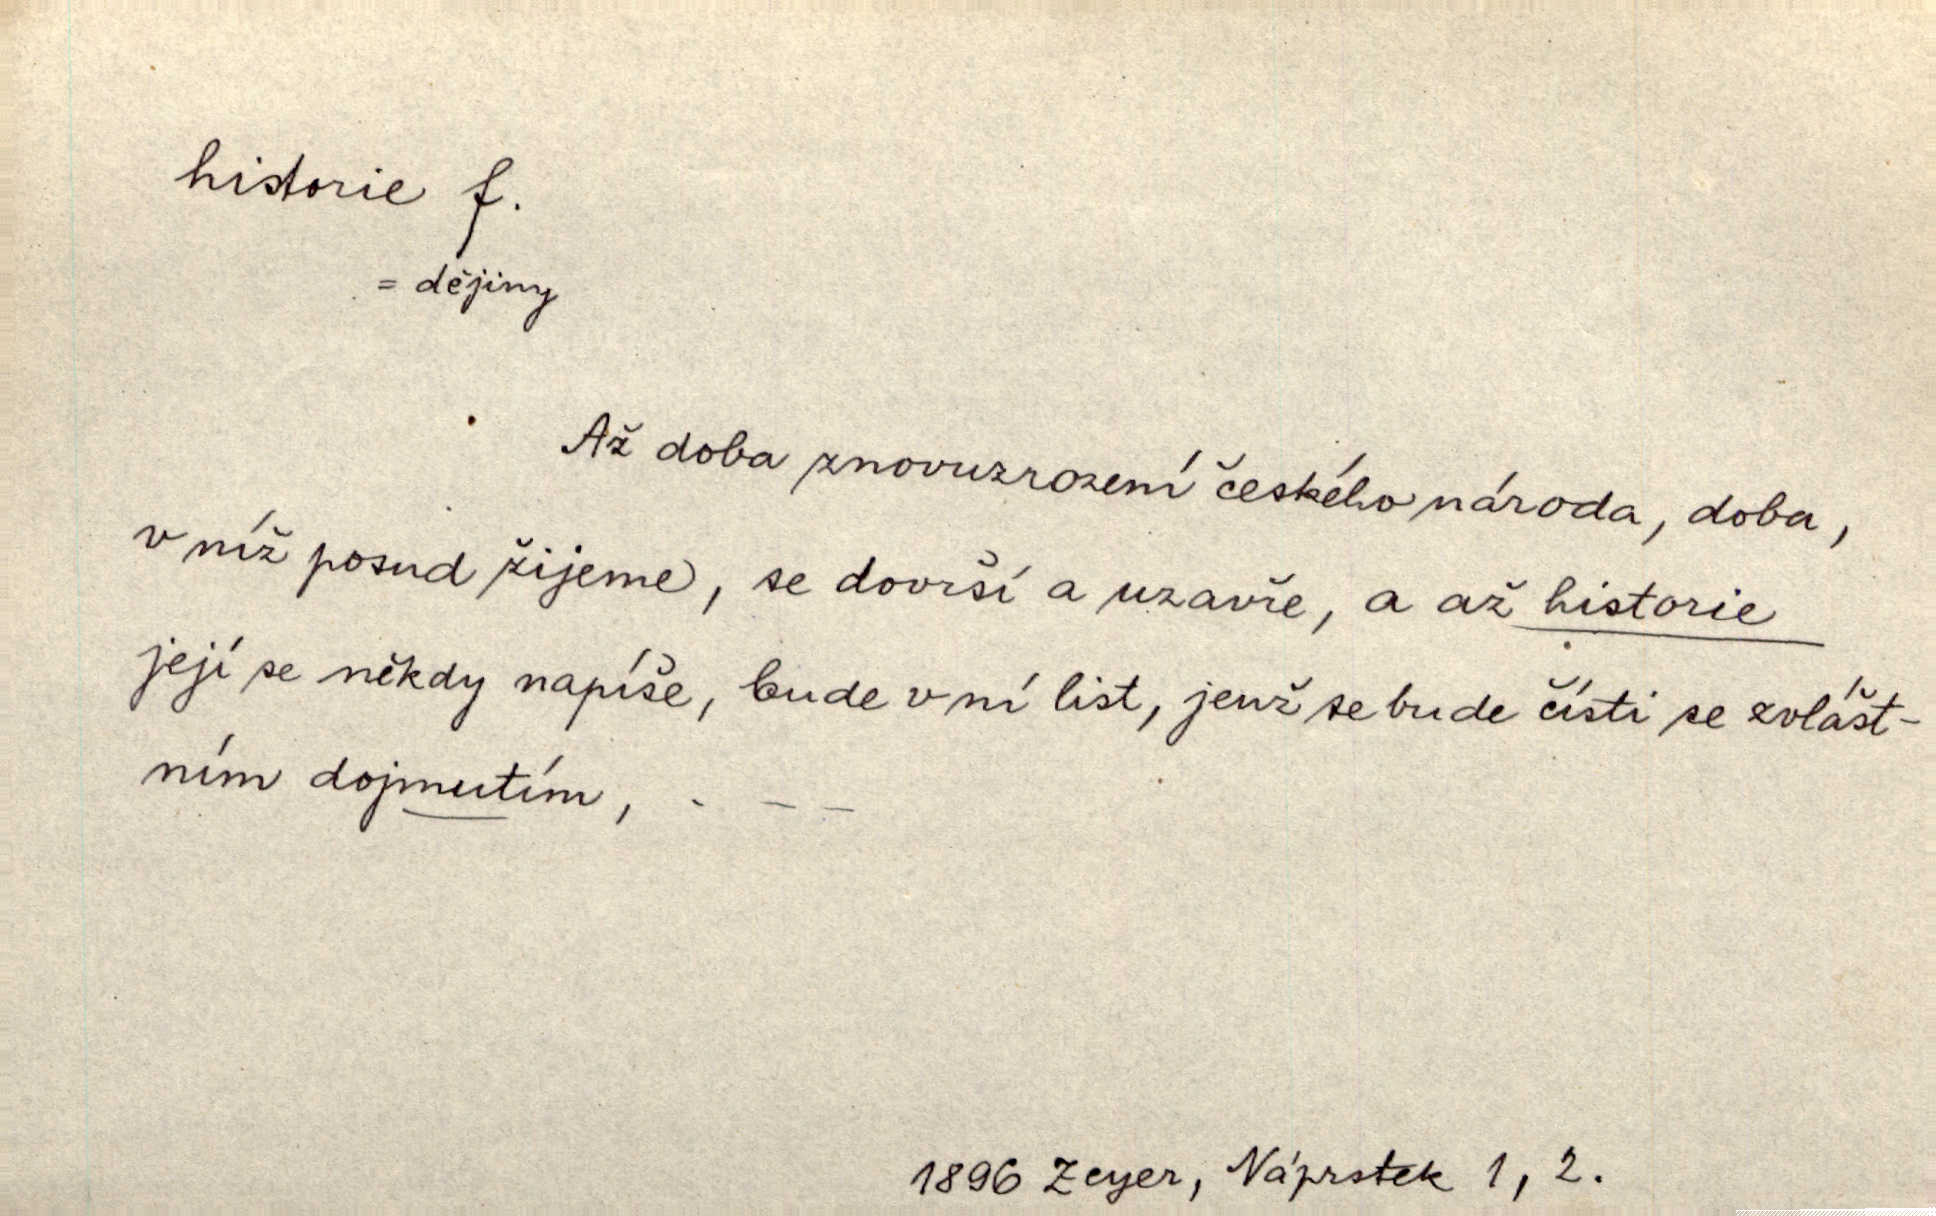 historie f.
= dějiny
Až doba znovuzrození českého národa, doba,
v níž posud žijeme, se dovrší a uzavře, a až historie
její se někdy napíše, bude v ní list, jenž se bude čísti se zvlášt-
ním dojmutím, . – –
1896 Zeyer, Náprstek 1, 2.